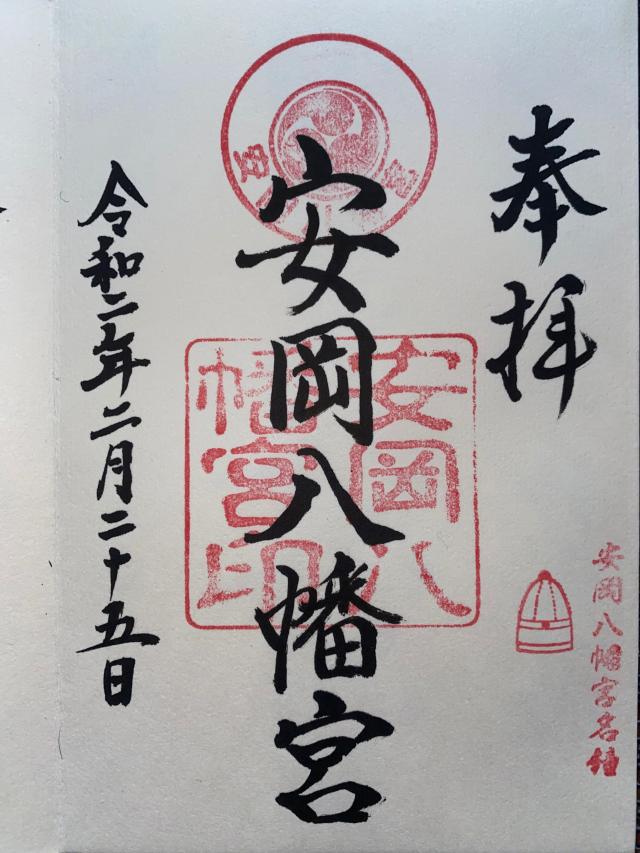 奉拝
安岡八幡宮
令和二年二月二十五日
安岡八
幡宮印
安岡八幡宮名鐘